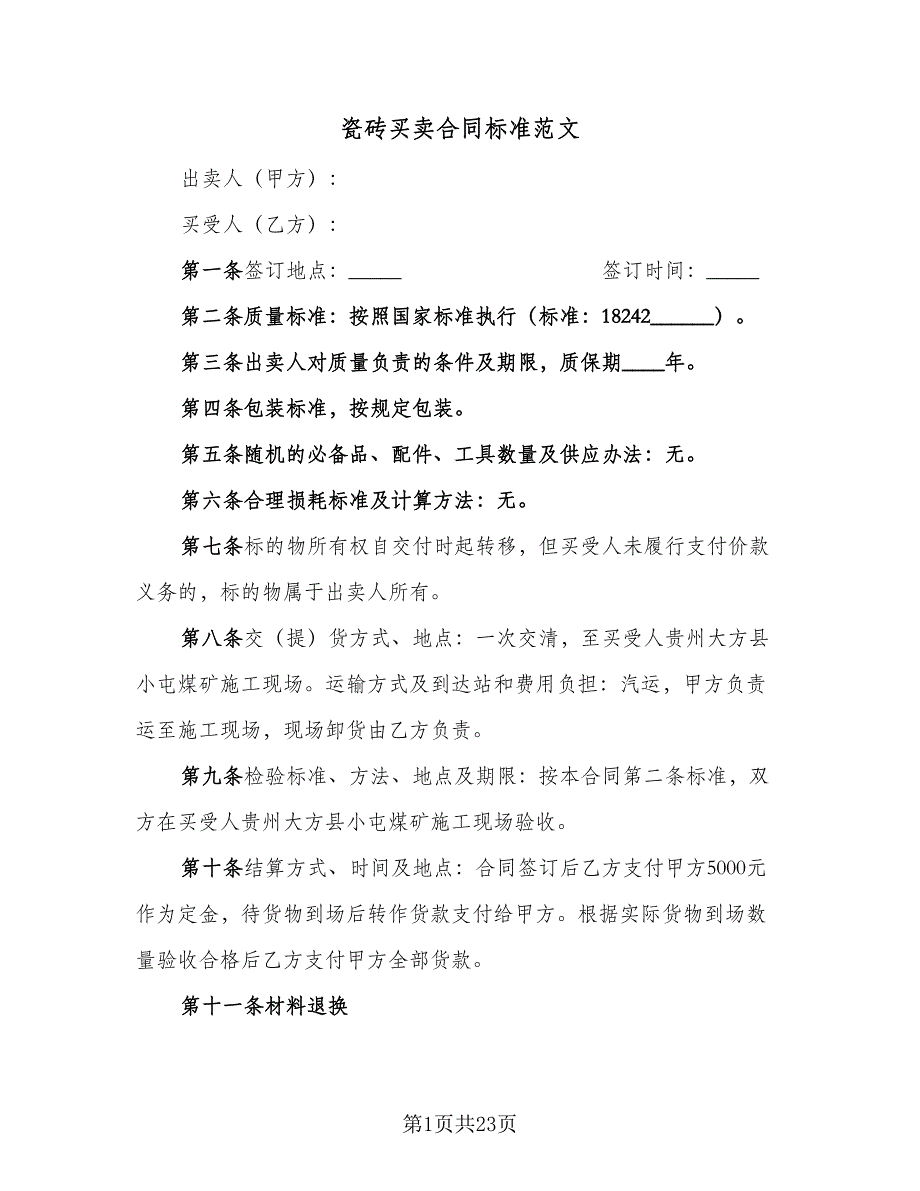 瓷砖买卖合同标准范文
出卖人（甲方）：
买受人（乙方）：
第一条签订地点：_____ 签订时间：_____
第二条质量标准：按照国家标准执行（标准：18242______）。
第三条出卖人对质量负责的条件及期限，质保期____年。
第四条包装标准，按规定包装。
第五条随机的必备品、配件、工具数量及供应办法：无。
第六条合理损耗标准及计算方法：无。
第七条标的物所有权自交付时起转移，但买受人未履行支付价款
义务的，标的物属于出卖人所有。
第八条交（提）货方式、地点：一次交清，至买受人贵州大方县
小屯煤矿施工现场。运输方式及到达站和费用负担：汽运，甲方负责
运至施工现场，现场卸货由乙方负责。
第九条检验标准、方法、地点及期限：按本合同第二条标准，双
方在买受人贵州大方县小屯煤矿施工现场验收。
第十条结算方式、时间及地点：合同签订后乙方支付甲方5000元
作为定金，待货物到场后转作货款支付给甲方。根据实际货物到场数
量验收合格后乙方支付甲方全部货款。
第十一条材料退换
第1页共23页